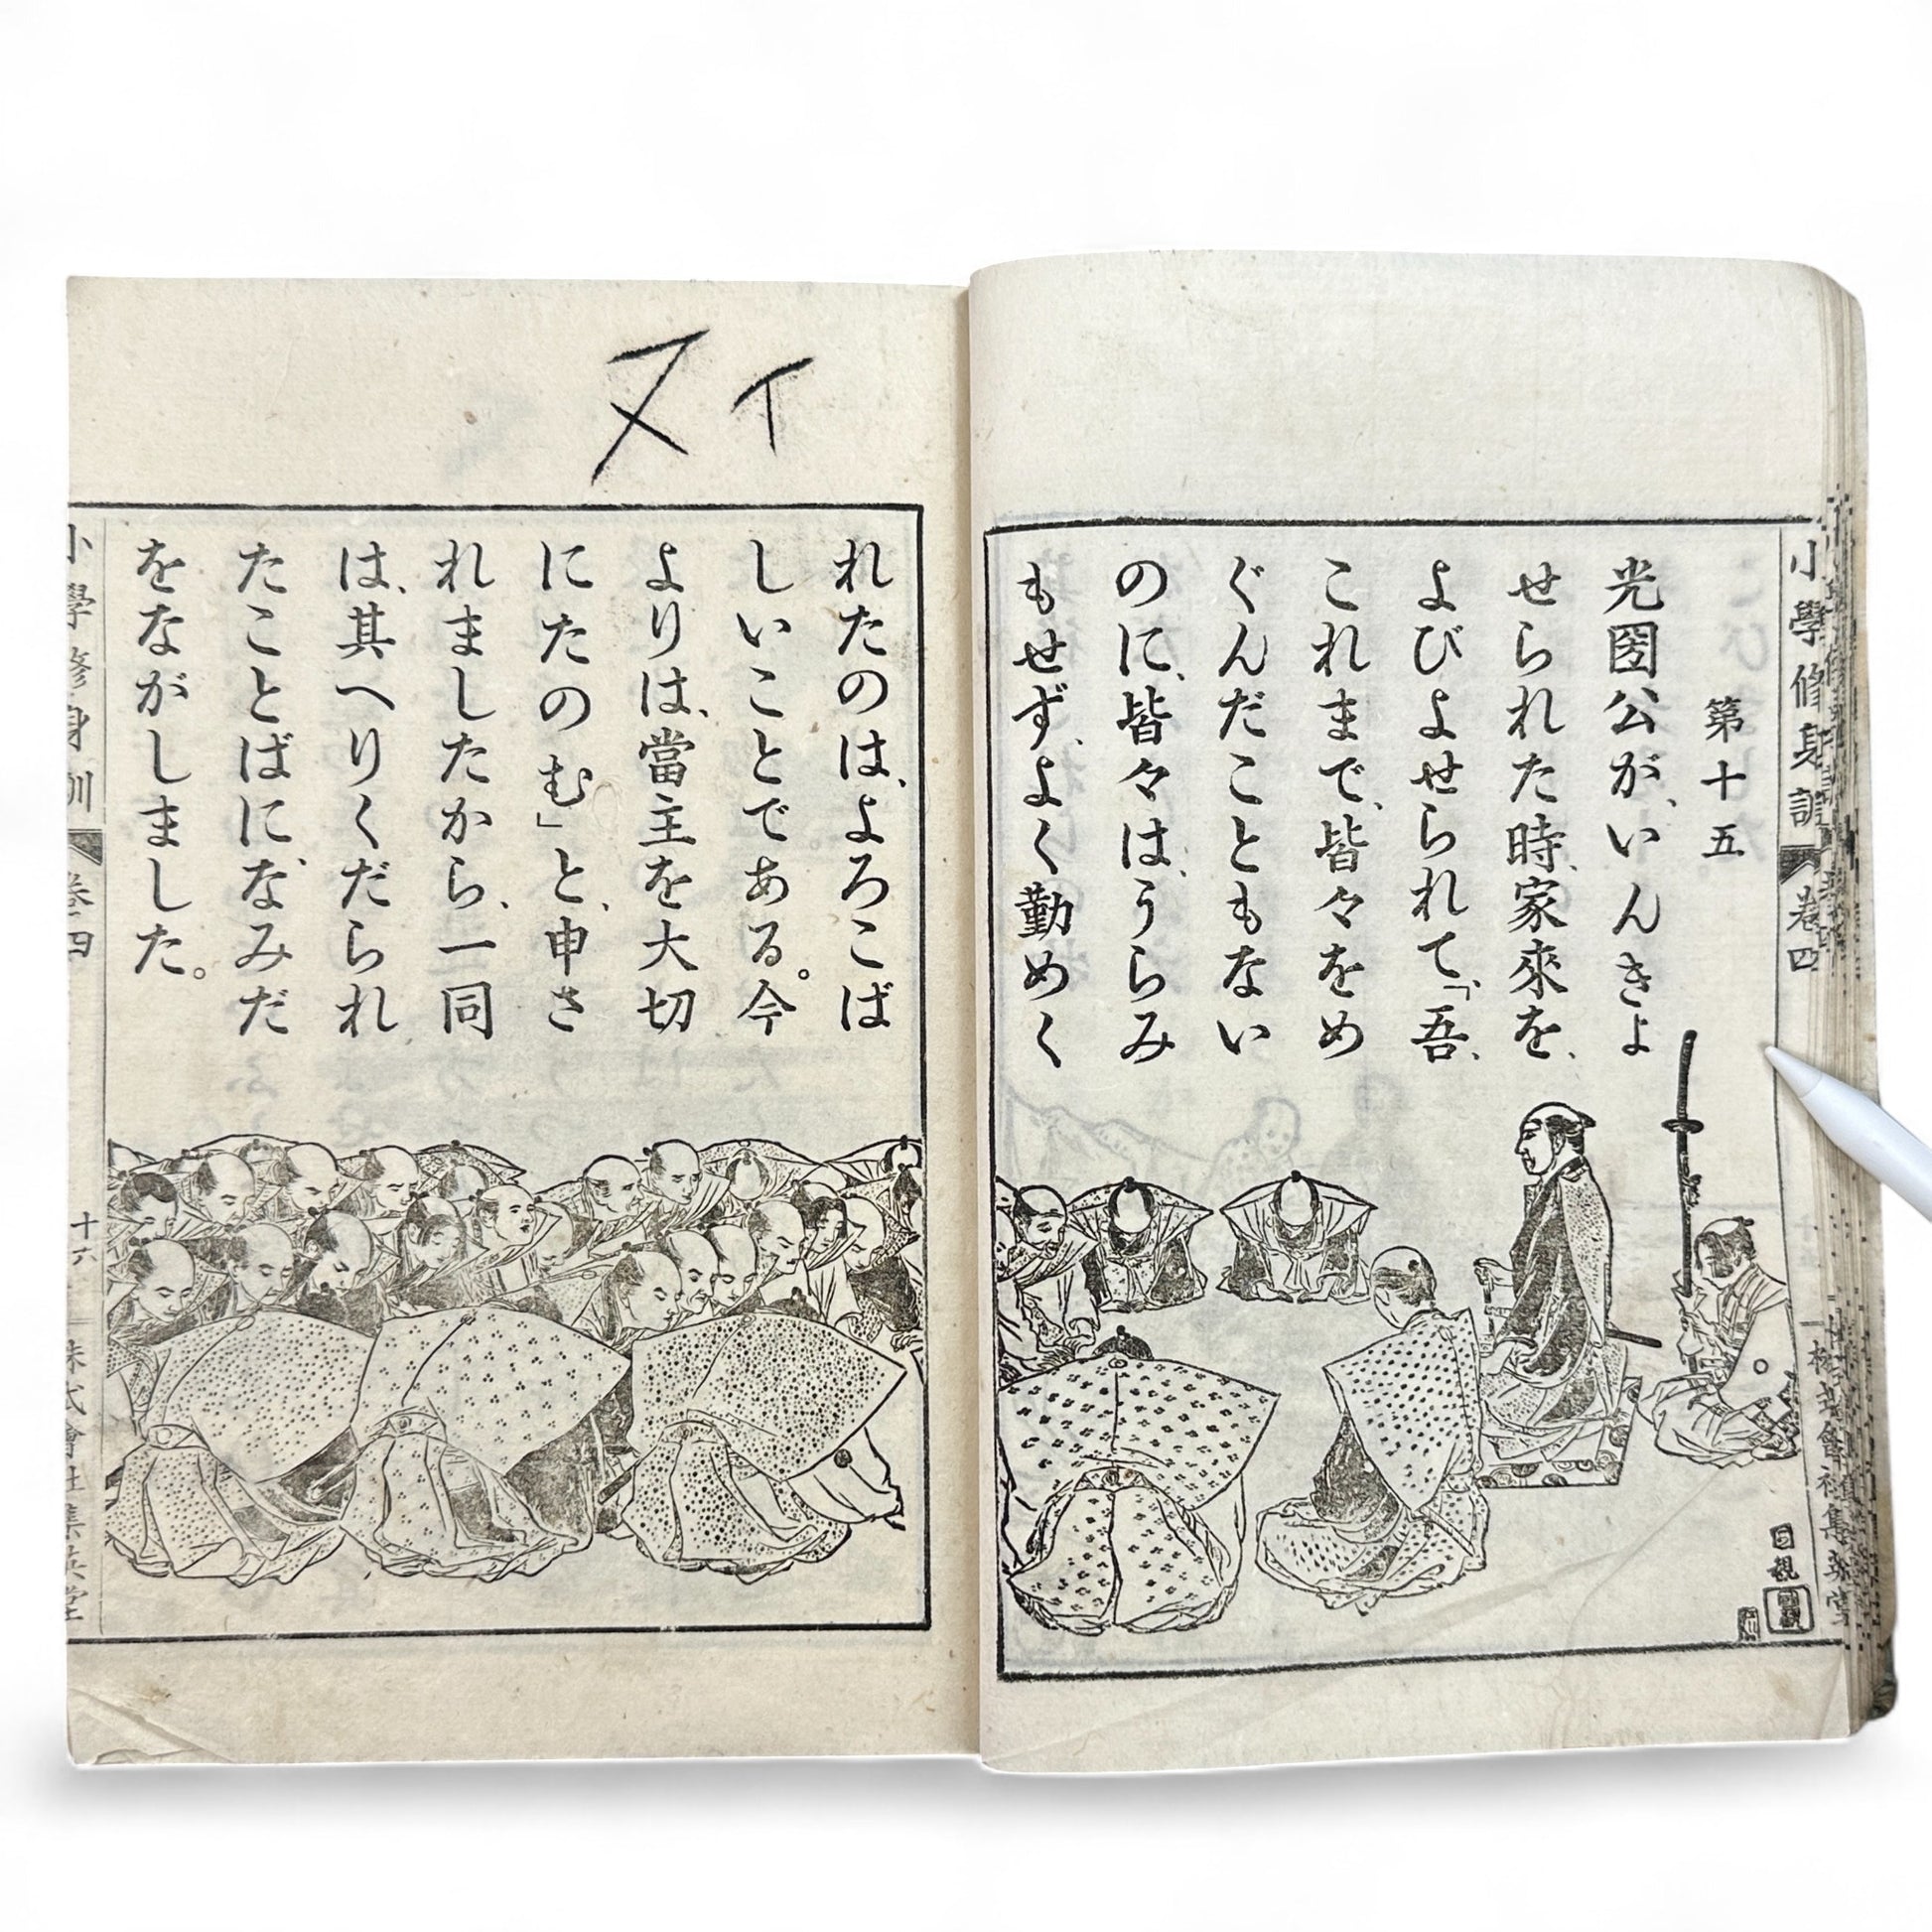 小學修身訓 卷四
第十五
光圀公が、いんきよ
せられた時、家來を、
よびよせられて、「吾、
これまで、皆々をめ
ぐんだこともない
のに、皆々は、うらみ
もせず、よく勤めく
ヌイ
れたのは、よろこば
しいことである。今
よりは、當主を大切
にたのむ」と、申さ
れましたから、一同
は、其へりくだられ
たことばに、なみだ
をながしました。
小學修身訓 卷四
十六